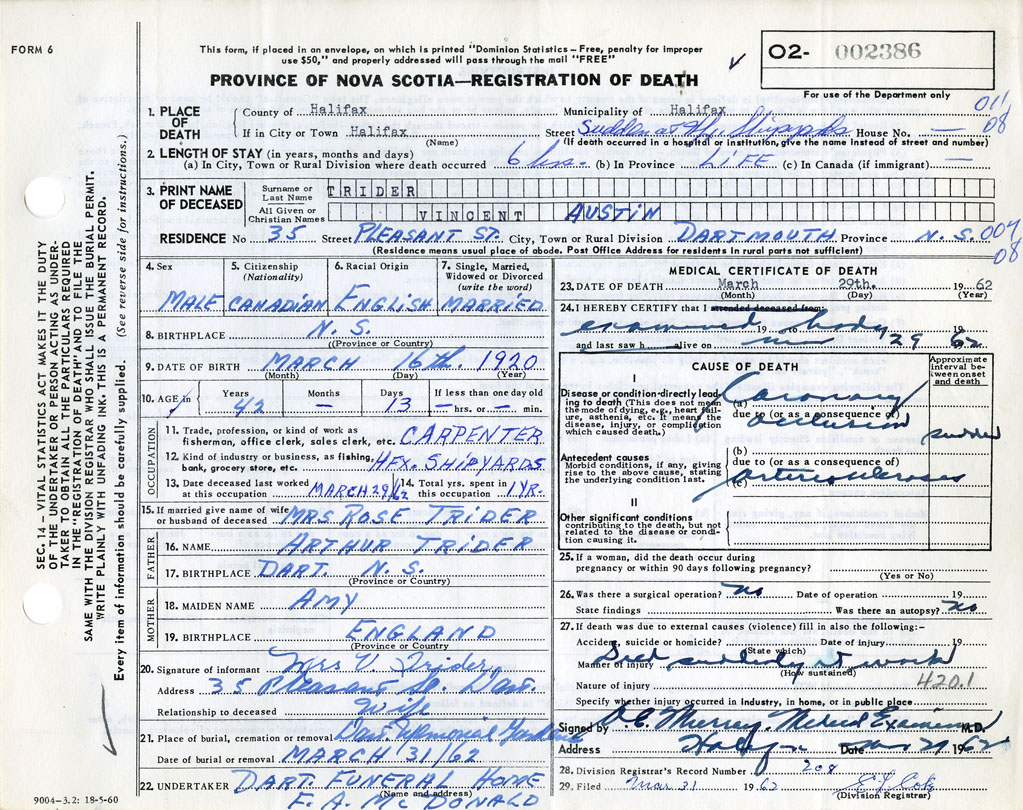 FORM 6
This form, if placed in an envelope, on which is printed "Dominion Statistics—Free, penalty for improper
use $50," and properly addressed will pass through the mail "FREE"
PROVINCE OF NOVA SCOTIA—REGISTRATION OF DEATH
O2- 002386
For use of the Department only
011
08
1. PLACE OF DEATH
County of Halifax Municipality of Halifax
If in City or Town Halifax Street Sudden at Hx. Shipyards House No. —
(Name) (If death occurred in a hospital or institution, give the name instead of street and number)
2. LENGTH OF STAY (in years, months and days)
(a) In City, Town or Rural Division where death occurred 6 hrs. (b) In Province LIFE (c) In Canada (if immigrant) —
3. PRINT NAME OF DECEASED
Surname or Last Name TRIDER
All Given or Christian Names VINCENT AUSTIN
RESIDENCE No 35 Street PLEASANT ST. City, Town or Rural Division DARTMOUTH Province N.S. 004
08
(Residence means usual place of abode. Post Office Address for residents in rural parts not sufficient)
4. Sex MALE
5. Citizenship (Nationality) CANADIAN
6. Racial Origin ENGLISH
7. Single, Married, Widowed or Divorced (write the word) MARRIED
8. BIRTHPLACE N.S.
(Province or Country)
9. DATE OF BIRTH MARCH 16th. 1920
(Month) (Day) (Year)
10. AGE in Years 42 Months — Days 13 If less than one day old — hrs. or — min.
OCCUPATION
11. Trade, profession, or kind of work as
fisherman, office clerk, sales clerk, etc. CARPENTER
12. Kind of industry or business, as fishing,
bank, grocery store, etc. HFX. SHIPYARDS
13. Date deceased last worked at this occupation MARCH 29/62
14. Total yrs. spent in this occupation 1 YR.
15. If married give name of wife
or husband of deceased MRS ROSE TRIDER
FATHER
16. NAME ARTHUR TRIDER
17. BIRTHPLACE DART. N.S.
(Province or Country)
MOTHER
18. MAIDEN NAME AMY
19. BIRTHPLACE ENGLAND
(Province or Country
20. Signature of informant Mrs V. Trider
Address 35 Pleasant St. Dart.
Relationship to deceased Wife
21. Place of burial, cremation or removal Dart. Memorial Gardens
Date of burial or removal MARCH 31/62
22. UNDERTAKER DART. FUNERAL HOME
(Name and address)
F. A. McDONALD
MEDICAL CERTIFICATE OF DEATH
23. DATE OF DEATH March 29th. 1962
(Month) (Day) (Year)
24. I HEREBY CERTIFY that I attended deceased from:
examined 19 to body 19
and last saw h alive on Mar 29 1962
CAUSE OF DEATH
Approximate interval between onset and death
I
Disease or condition directly leading to death (This does not mean the mode of dying, e.g., heart failure, asthenia, etc. It means the disease, injury, or complication which caused death.)
(a) Coronary
due to (or as a consequence of)
occlusion sudden
Antecedent causes
Morbid conditions, if any, giving rise to the above cause, stating the underlying condition last.
(b)
due to (or as a consequence of)
(c) arteriosclerosis
II
Other significant conditions
contributing to the death, but not related to the disease or condition causing it
25. If a woman, did the death occur during
pregnancy or within 90 days following pregnancy?
(Yes or No)
26. Was there a surgical operation? No Date of operation 19
State findings Was there an autopsy? No
27. If death was due to external causes (violence) fill in also the following:-
Accident, suicide or homicide? Date of injury 19
(State which)
Died suddenly at work
Manner of injury
(How sustained)
420.1
Nature of injury
Specify whether injury occurred in industry, in home, or in public place
Signed by A.C. Murray, Medical Examiner M.D.
Address Halifax Date Mar 29 1962
28. Division Registrar's Record Number 208
29. Filed Mar 31 1962
(Division Registrar)
SEC. 14 – VITAL STATISTICS ACT MAKES IT THE DUTY
OF THE UNDERTAKER OR PERSON ACTING AS UNDER-
TAKER TO OBTAIN ALL THE PARTICULARS REQUIRED
IN THE "REGISTRATION OF DEATH" AND TO FILE THE
SAME WITH THE DIVISION REGISTRAR WHO SHALL ISSUE THE BURIAL PERMIT.
WRITE PLAINLY WITH UNFADING INK. THIS IS A PERMANENT RECORD.
Every item of information should be carefully supplied. (See reverse side for instructions.)
9004-3.2: 18-5-60